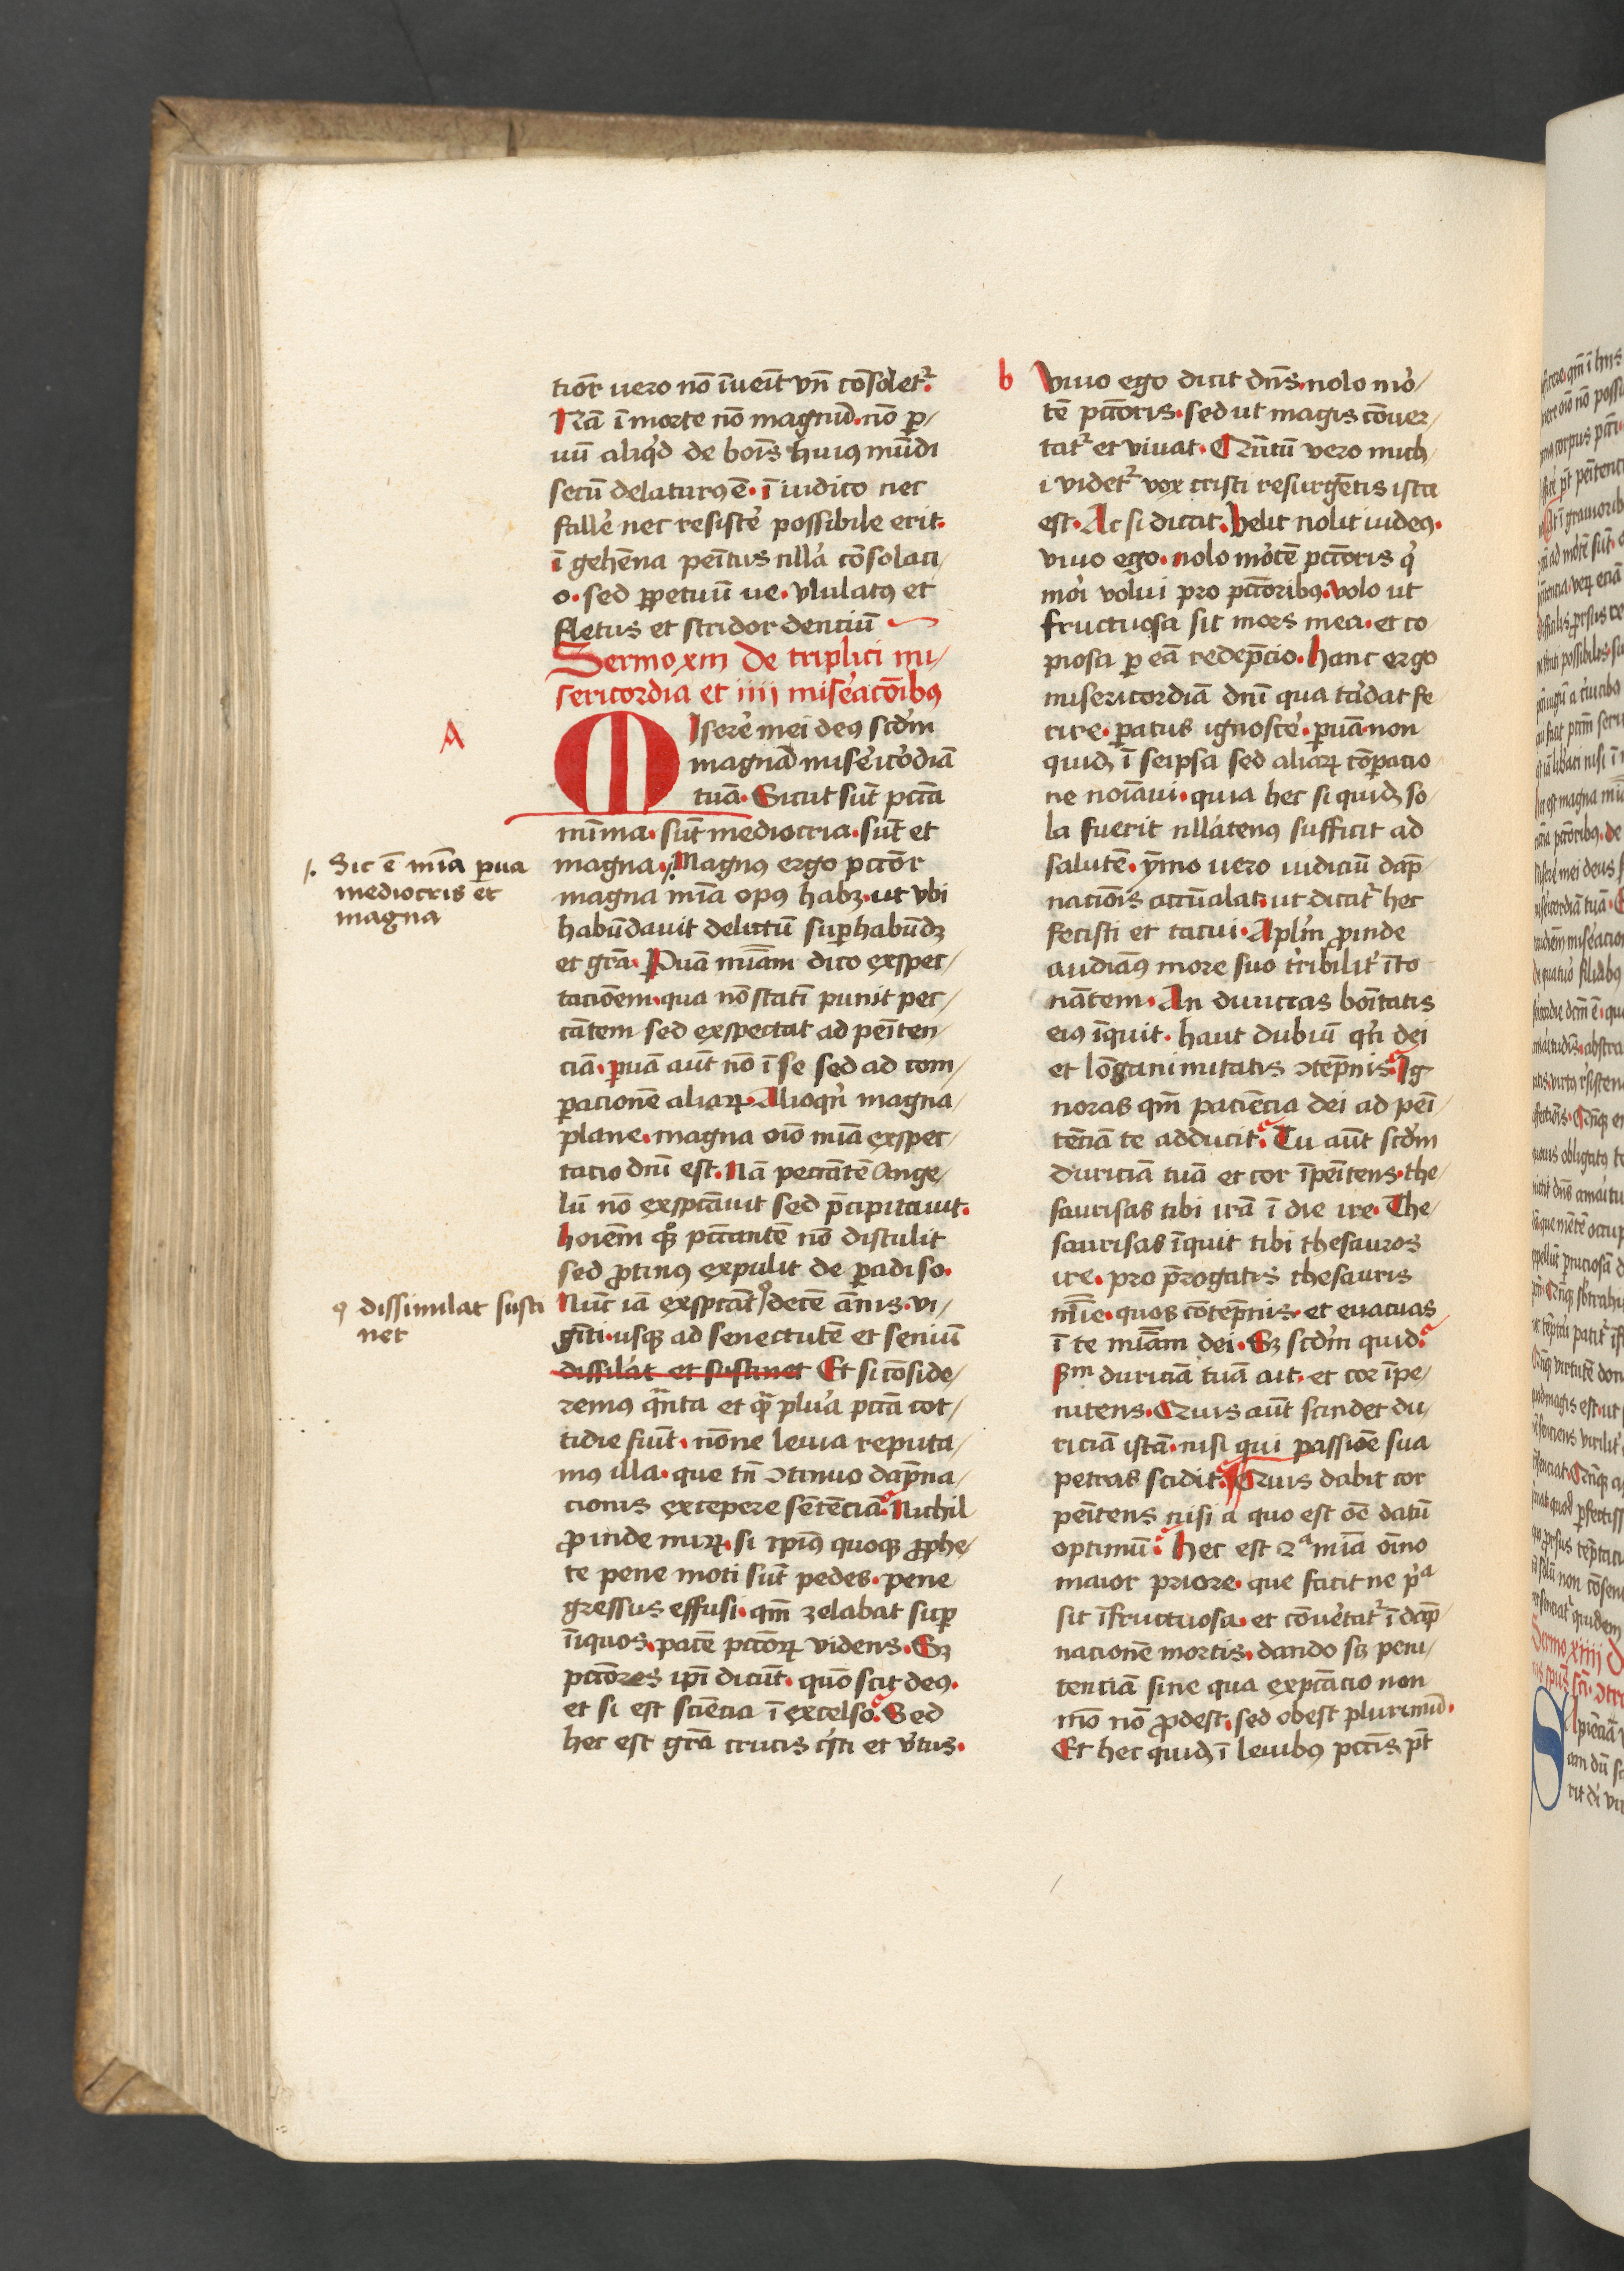 tior̄ uero nō īueīt vn̄ cōsoletr̉.
Nā ī morte nō magnū. nō p̱/
uū aliqd̉ de bonīs huiꝯ mūdi
secū delaturꝯ ē. ī iudico nec
fallē nec resistē possibile erit.
ī gehēna penītus nlla̓ cōsolaci/
o. sed ꝑpetuū ue. vlulatꝯ et
fletus et stridor denciū
Sermo xiii De triplici mi/
sericordia et iiii misea̓cōibꝯ
A
MIsere̓ mei deꝯ scdm̄
magnā mise̓ico̓diā
tuā. Sicut sūt pctā
mīma. sūt mediocria. sūt et
magna. Magnꝯ ergo pctōr
magna mīa opꝯ habꝫ. ut vbi
habūdauit delictū suꝑhabūdꝫ
et grā. Paruā mīam dico exspec/
tacionem. qua nō statī punit pec/
cātem sed exspectat ad penīten/
ciā. ꝑuā aūt nō ī se sed ad com/
ꝑacionē aliaꝝ. Alioqn̉ magna/
plane. magna oīo mīa exspec/
tacio dnī est. Nā peccātē Ange/
lū nō exspctāuit sed p̄cipitauit.
hoīem qꝫ̊ pctcantē nō distulit
sed ꝓtinꝯ expulit de ꝑadiso.
Nūc iā exspctāt ꝯ decē ānis. vi/
gīti. usqꝫ ad senectutē et seniū
dissila̓t et sustinet Et si cōside/
remꝯ qnta et qᷓ plu̓a pctā cot/
tidie fiūt. nōne leuia reputa/
mꝯ illa. que tn̄ ꝯtinuo dāpna/
cionis excepere sētēciā. Nichil
ꝓinde miꝝ. si ipīꝯ quoqꝫ ꝓphe/
te pene moti sūt pedes. pene
gressus effusi. qm̄ zelabat suꝑ
īiquos. pacē pctōꝝ videns. Sꝫ
pctōres ipī dicūt. quō scit deꝯ.
et si est sciēcia ī excelso. Sed
hec est grā crucis cr̉sti et v̓tus.
/. Sic ē mīa ꝑua
mediocris et
magna
ꝯ dissimulat susti
net
b
Viuo ego dicit dn̄s. nolo mo̓/
tē pctōris. sed ut magis cōuer/
tatr̉ et viuat. Quītū vero mich/
i videtr̉ vox cristi resurgētis ista
est. Ac si dicat. Velit nolit iudeꝯ.
viuo ego. nolo mo̓tē pctōris q̓
mo̓i volui pro pctōribꝯ. volo ut
fructuosa sit mors mea. et co
piosa ꝑ eā redēpcio. Hanc ergo
misericordiā dnī qua ta̓dat fe/
rire. ꝑatus ignosce̓. ꝑuā non
quidꝫ ī seipsa sed aliaꝝ cōꝑacio
ne noīaui. quia hec si quidꝫ so/
la fuerit nlla̓tenꝯ sufficit ad
salutē. ȳmo uero iudiciū dāp/
nacioīs accūalat. ut dicatr̉ hec
fecisti et tacui. Aplm̄ ꝓinde
audiāꝯ more suo t̓ribilit̓ īto
nātem. An diuicias bonītatis
eiꝯ īquit. haut dubiū qn̓ dei
et lōganimitatis ꝯtēpnis. Ig
noras qm̄ paciēcia dei ad penī/
tēciā te adducit. Tu aūt scdm̄
duriciā tuā et cor īpenītens. the/
saurisas tibi irā ī die ire. The/
saurisas īquit tibi thesauros
ire. pro p̄rogatis thesauris
mīie. quos cōtēpnis. et euacuas
ī te mīam dei. Sꝫ scdm̄ quid.
sm duriciā tuā ait. et cor īpe/
nitens. Quis aūt scindet du/
riciā istā. nisi qui passiōe sua
petras scidit. Quis dabit cor
penītens nisi a quo est oē datū
optimū. Hec est 2ᵃ mīa oīno
maior priore. que facit ne pᵃ
sit īfructuosa. et cōue̓tatr̉ ī dāp/
nacionē mortis. dando scꝫ peni/
tenciā sine qua expctācio non
mō nō ꝓdest. sed obest plurimū.
Et hec quidꝫ ī leuibꝯ pctīs pt̄